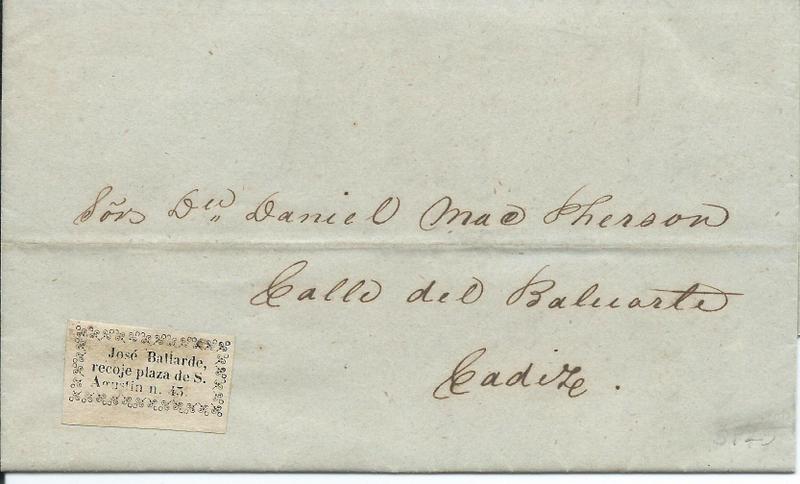 Sõrs Dⁿ Daniel Mac Pherson
Calle del Baluarte
Cadiz.
José Baliarde,
recoje plaza de S.
Agustin n. 43